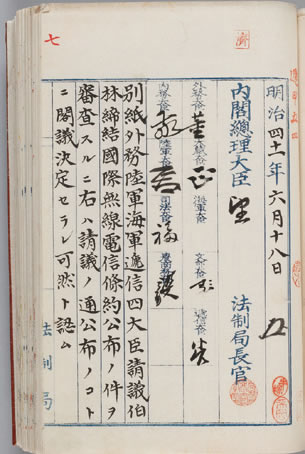 七
明治四十一年六月十八日
内閣總理大臣
法制局長官
外務大臣
大藏大臣
海軍大臣
文部大臣
遞信大臣
内務大臣
陸軍大臣
司法大臣
農商務大臣
別紙外務陸軍海軍遞信四大臣請議伯
林締結國際無線電信條約公布ノ件ヲ
審査スルニ右ハ請議ノ通公布ノコト
ニ閣議決定セラレ可然ト認ム
法制局